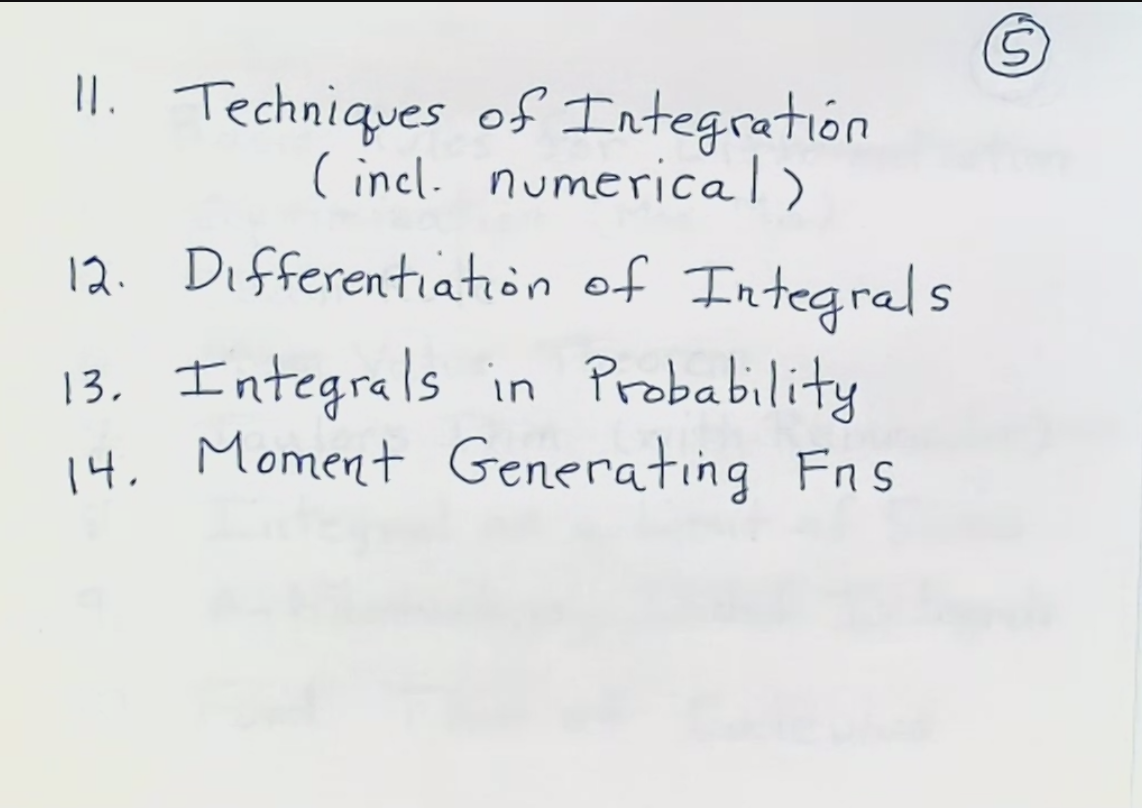 5
11. Techniques of Integration
(incl. numerical)
12. Differentiation of Integrals
13. Integrals in Probability
14. Moment Generating Fns